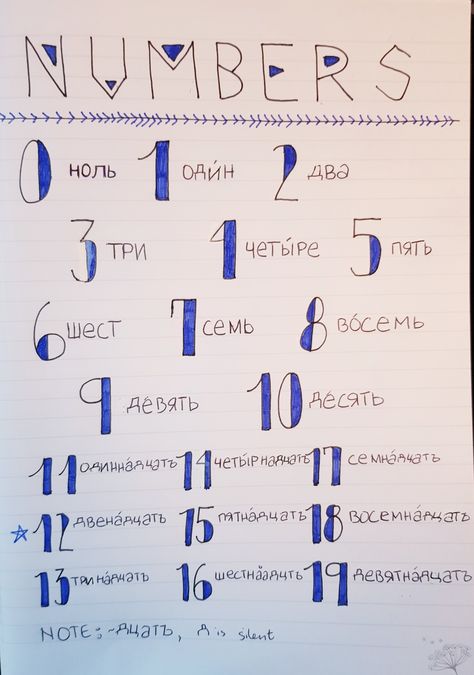 NUMBERS
0 ноль 1 оди́н 2 два
3 три 4 четы́ре 5 пять
6 шест 7 семь 8 во́семь
9 де́вять 10 де́сять
11 одинна́дцатъ 14 четы́рнадцатъ 17 семна́дцать
12 двена́дцать 15 пятна́дцать 18 восемна́дцать
13 трина́дцать 16 шестна́дцть 19 девятна́дцать
NOTE: ~дцать, д is silent